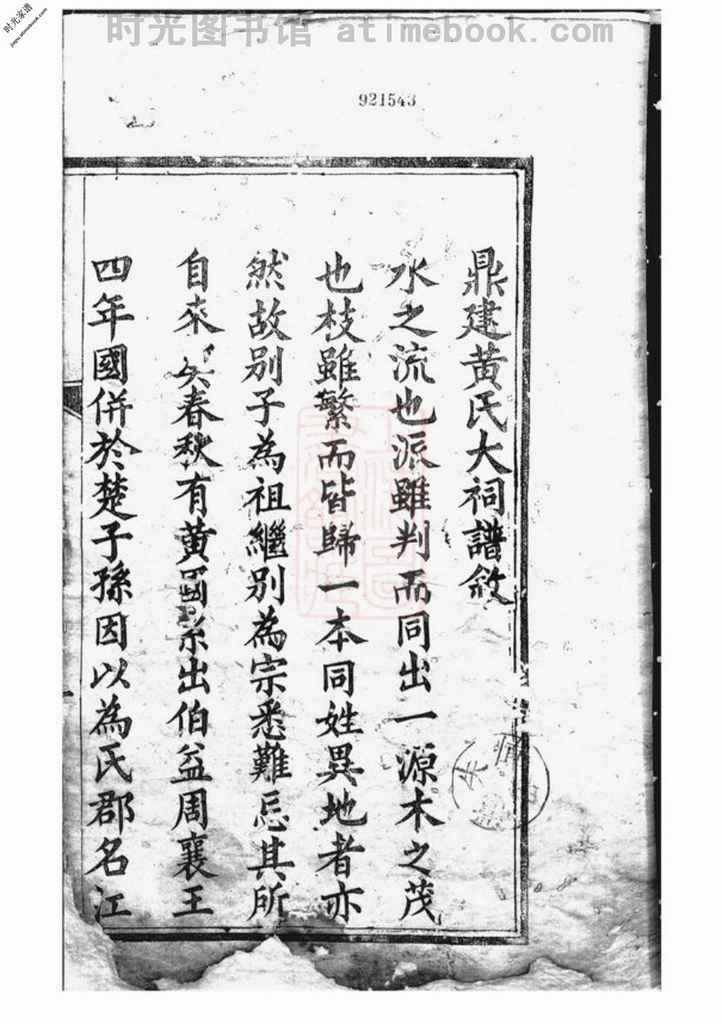 时光家谱
jiapu.atimebook.com
时光图书馆 atimebook.com
921543
鼎建黃氏大祠譜敘
水之流也派雖判而同出一源木之茂
也枝雖繁而皆歸一本同姓異地者亦
然故別子為祖繼別為宗悉難忘其所
自來矣春秋有黃國系出伯益周襄王
四年國併於楚子孫因以為氏郡名江